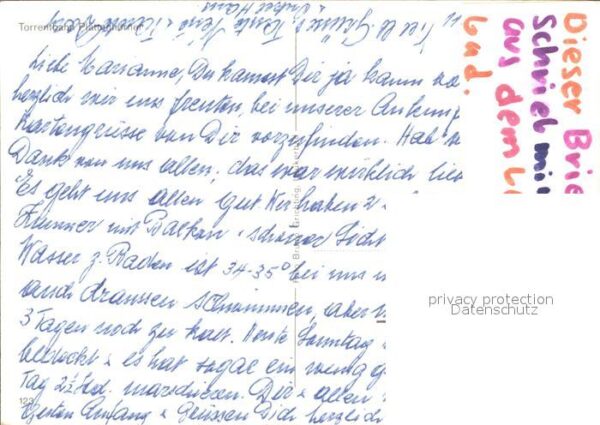 Torrentbahn Plattenhörner
Liebe Marianne, Du kannst Dir ja kaum
herzlich wir uns freuten, bei unserer Ankunf
Kartengrüsse von Dir vorzufinden. Hab
Dank von uns allen, das war wirklich lieb
Es geht uns allen gut Wir haben 2
Zimmer mit Balkon schöner Sicht
Wasser z. Baden ist 34-35° bei uns
auch draussen schwimmen, aber
3 Tagen noch zu kalt. Heute Sonntag
bedeckt & es hat sogar ein wenig g
Tag 2½ Std. marschieren. Dir & allen
guten Anfang & Grüssen Dich herzlich
Dieser Brie
Schrieb mir
aus dem
Bad.
privacy protection
Datenschutz